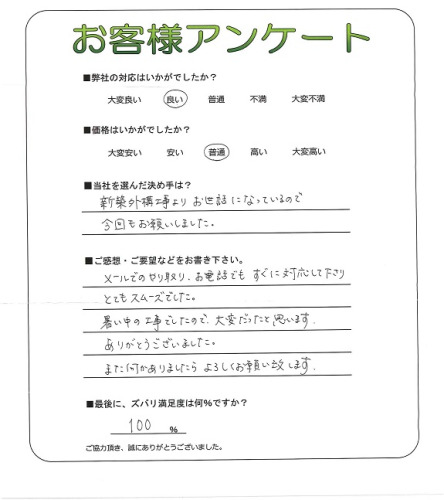 お客様アンケート
■弊社の対応はいかがでしたか?
大変良い 良い 普通 不満 大変不満
■価格はいかがでしたか?
大変安い 安い 普通 高い 大変高い
■当社を選んだ決め手は?
新築外構工事より お世話になっているので
今回もお願いしました。
■ご感想・ご要望などをお書き下さい。
メールでのやり取り、お電話でも すぐに対応して下さり
とてもスムーズでした。
暑い中の工事でしたので、大変だったと思います。
ありがとうございました。
また何かありましたら よろしくお願い致します。
■最後に、ズバリ満足度は何%ですか?
100 %
ご協力頂き、誠にありがとうございました。